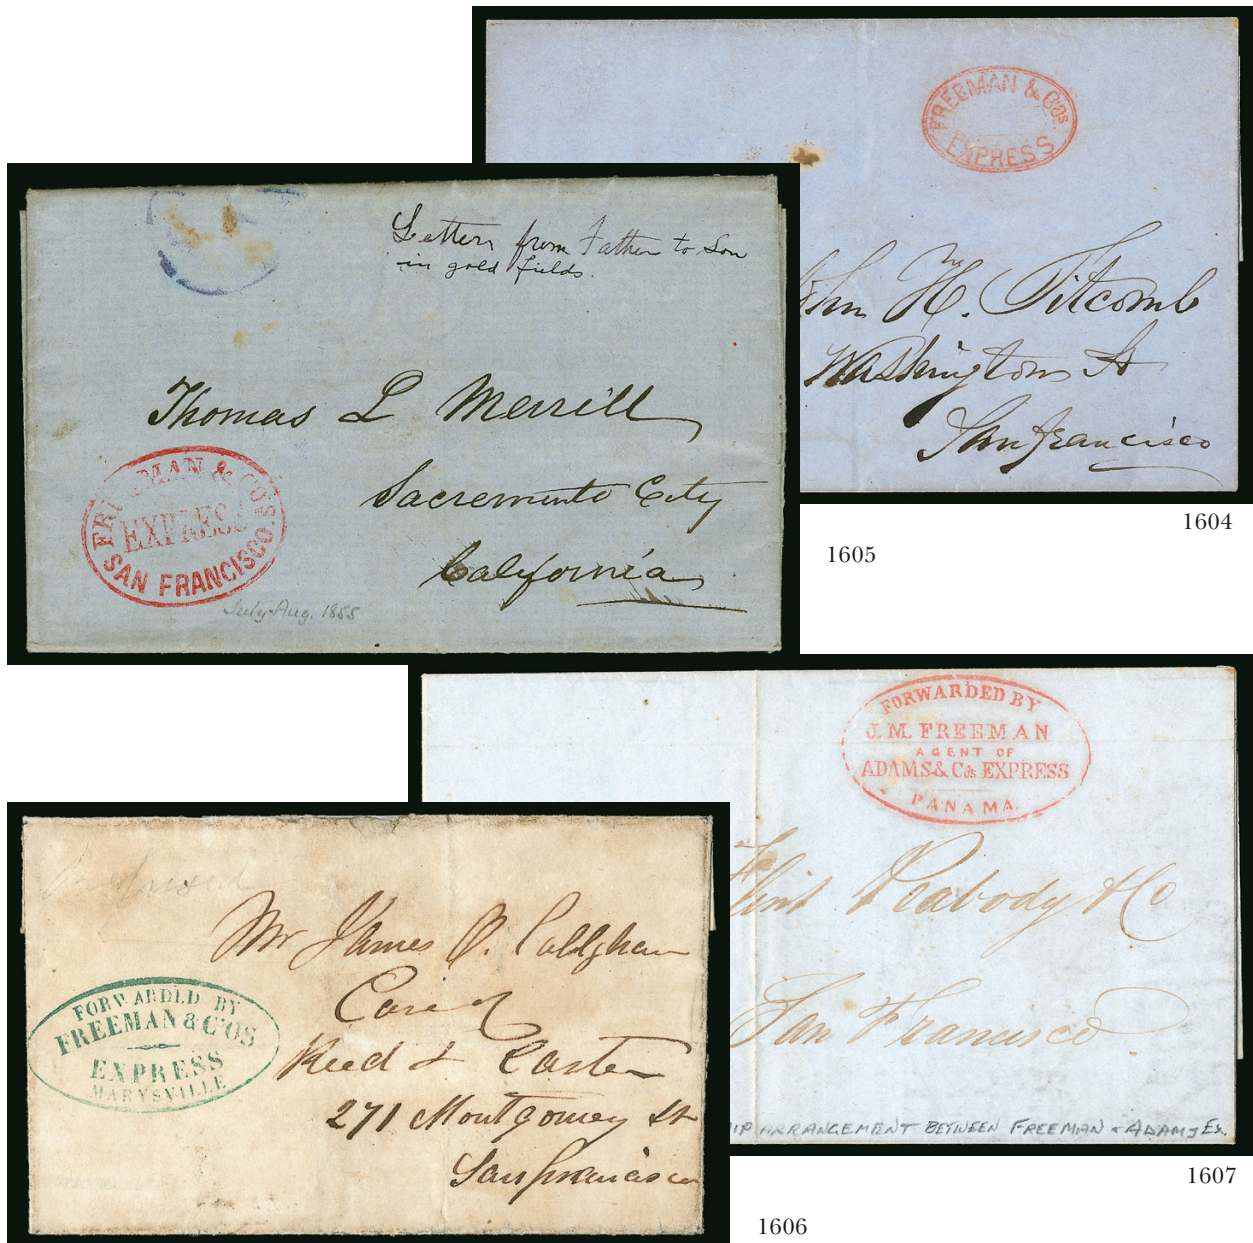 FREEMAN & COS
EXPRESS
H. Titcomb
Washington St
San francisco
1604
Letters from Father to Son
in gold fields.
Thomas L Merrill
Sacremento City
California
FREEMAN & CO'S
EXPRESS
SAN FRANCISCO.
July-Aug. 1855
1605
FORWARDED BY
J. M. FREEMAN
AGENT OF
ADAMS & Cos EXPRESS
PANAMA.
Flint Peabody & Co
San Francisco
ARRANGEMENT BETWEEN FREEMAN + ADAMS Ex.
1607
Mr James O.
Care of
Reed &
271 Montgomey St
San francisco
FORWARDED BY
FREEMAN & CO'S
EXPRESS
MARYSVILLE
1606